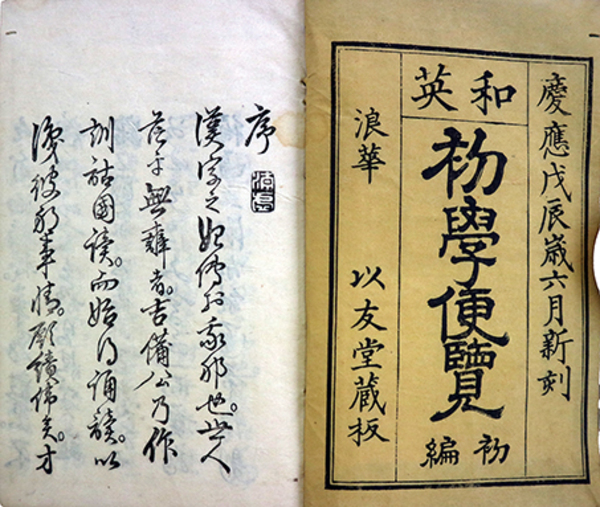 慶應戊辰歳六月新刻
和英
初學便覽
初編
浪華 以友堂蔵板
序
漢字之始傳於我邦也。世人
茫乎無辨者。吉備公乃作
訓詁國讀。而始得誦讀。以
識彼邦事情。厥績偉矣。才